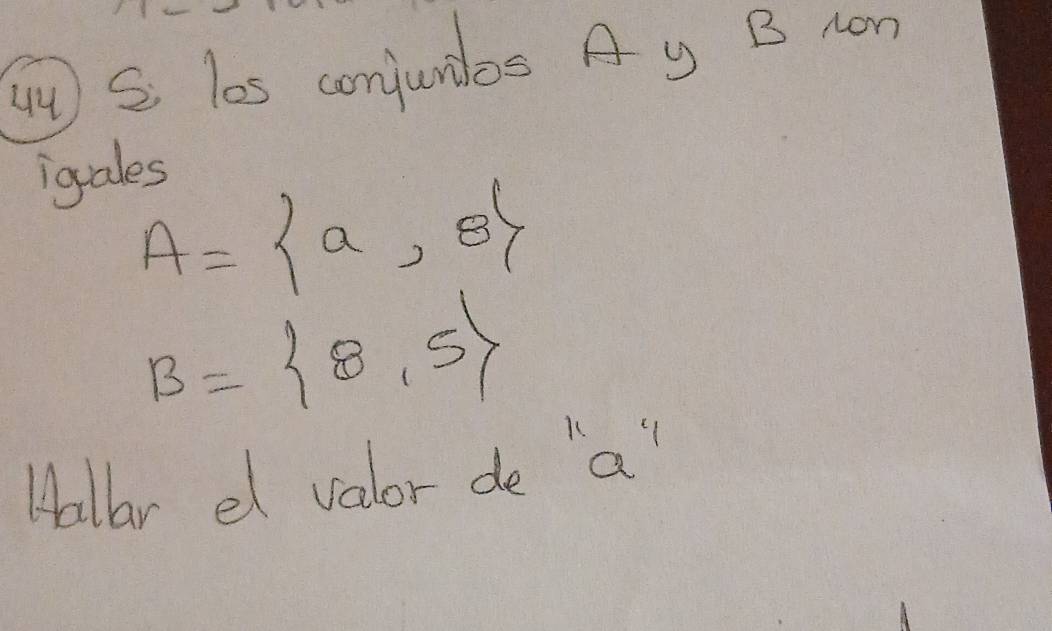 44) Si los conjuntos A y B son
iguales
A = {a, 8}
B = {8, 5}
Hallar el valor de "a"